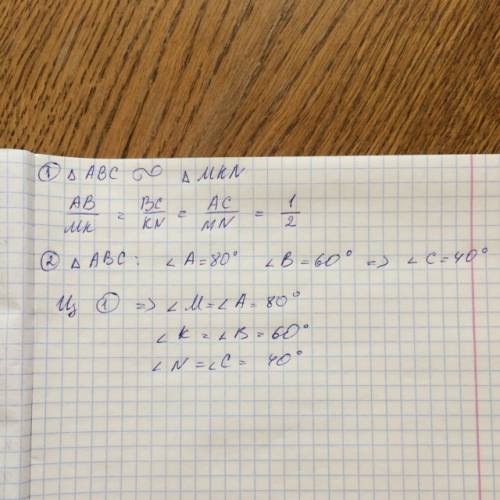 ① △ ABC ∾ △ MKN
AB/MK = BC/KN = AC/MN = 1/2
② △ ABC: ∠A=80° ∠B=60° => ∠C=40°
Из ① => ∠M=∠A=80°
∠K=∠B=60°
∠N=∠C=40°